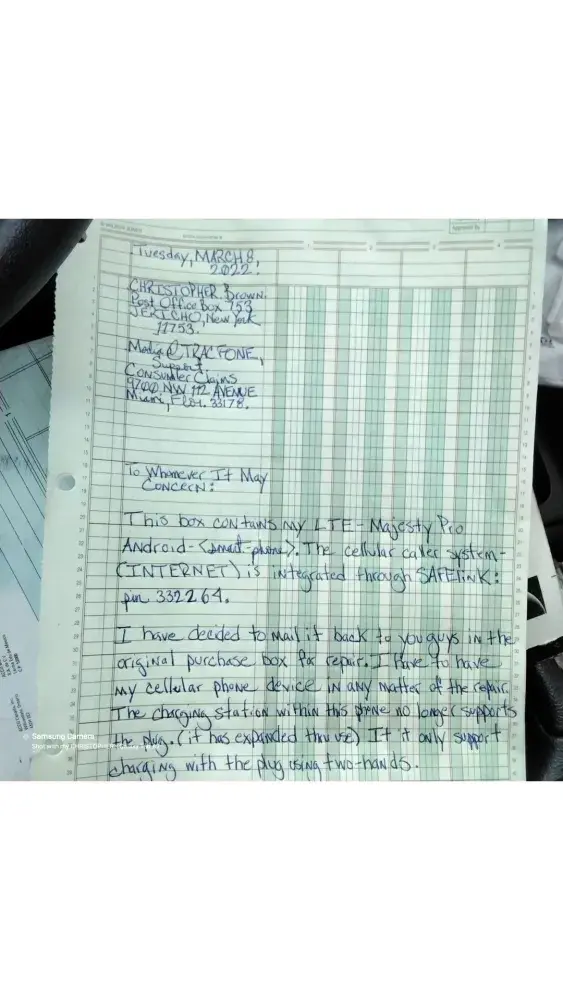 WILSON JONES
Approved By
Tuesday, MARCH 8,
2022.
CHRISTOPHER. Brown.
Post Office Box 753
JERICHO, New York
11753.
Media @ TRACFONE,
Support.
Consumer Claims
9700 NW 112 AVENUE
Miami, Flor. 33178.
To Whomever It May
CONCERN:
This box contains my LTE-Majesty Pro
Android-<smart-phone>. The cellular caller system-
(INTERNET) is integrated through SAFElinK:
pin 332264.
I have decided to mail it back to you guys in the
original purchase box for repair. I have to have
my cellular phone device in any matter of the repair.
The charging station within this phone no longer supports
the plug. (it has expanded thru use) It it only support
charging with the plug using two-hands.
Samsung Camera
Shot with my